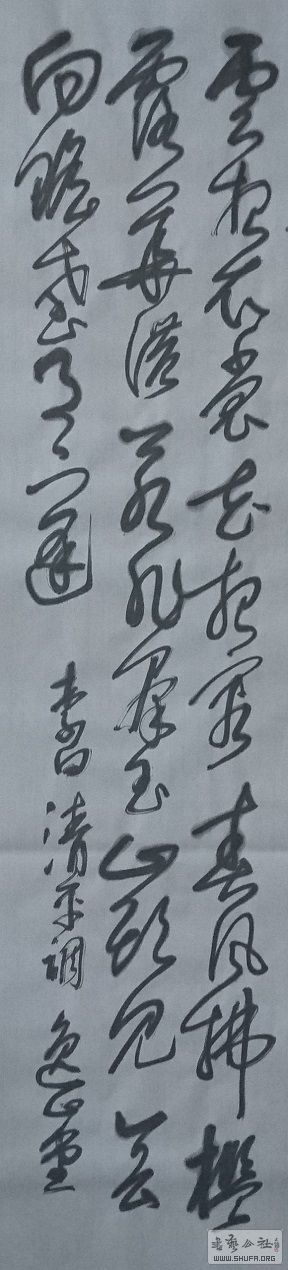 雲想衣裳花想容春風拂檻
露華濃若非羣玉山頭見會
向瑤臺月下逢 李白清平調
書藝公社
WWW.SHUFA.ORG